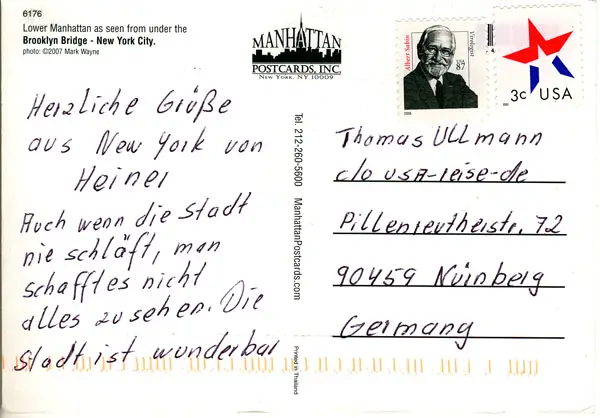 6176
Lower Manhattan as seen from under the
Brooklyn Bridge - New York City.
photo: ©2007 Mark Wayne
MANHATTAN
POSTCARDS, INC.
NEW YORK, NY 10009
Albert Sabin
Virologist
USA
87
2006
3c USA
Herzliche Grüße
aus New York von
Heiner
Auch wenn die Stadt
nie schläft, man
schafft es nicht
alles zu sehen. Die
Stadt ist wunderbar
Tel. 212-260-5600 ManhattanPostcards.com
Printed in Thailand
Thomas Ullmann
c/o USA-reise-de
Pillenreutherstr. 72
90459 Nürnberg
Germany